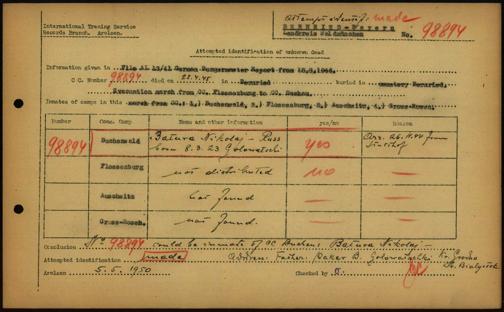 International Tracing Service
Records Branch. Arolsen.
Attempt identif. made
Landkreis
No. 98894
Attempted identification of unknown dead
Information given in File AL 13/41 German Burgermeister Report from 1946.
C C. Number 98894 died on 22.4.45 in Bernried buried in cemetery Bernried.
Evacuation march from CC. Flossenburg to CC. Dachau.
Inmates of camps in this march from CC: 1.) Buchenwald, 2.) Flossenburg, 3.) Auschwitz, 4.) Gross-Rosen.
Number Conc. Camp Name and other information yes/no
98894 Buchenwald Batura Nikolaj - Russ yes Arr. 26.11.44 from
born 8.3.23 Golowatschi
Flossenburg not distributed no
Auschwitz not found —
Gross-Rosen. not found. —
Conclusion No 98894 could be inmate of CC Buchenw. Batura Nikolaj -
Attempted identification made
Adress: Father: B. Golowatschi Kr. Grodno
Bialystok
Arolsen 5.5. 1950 Checked by